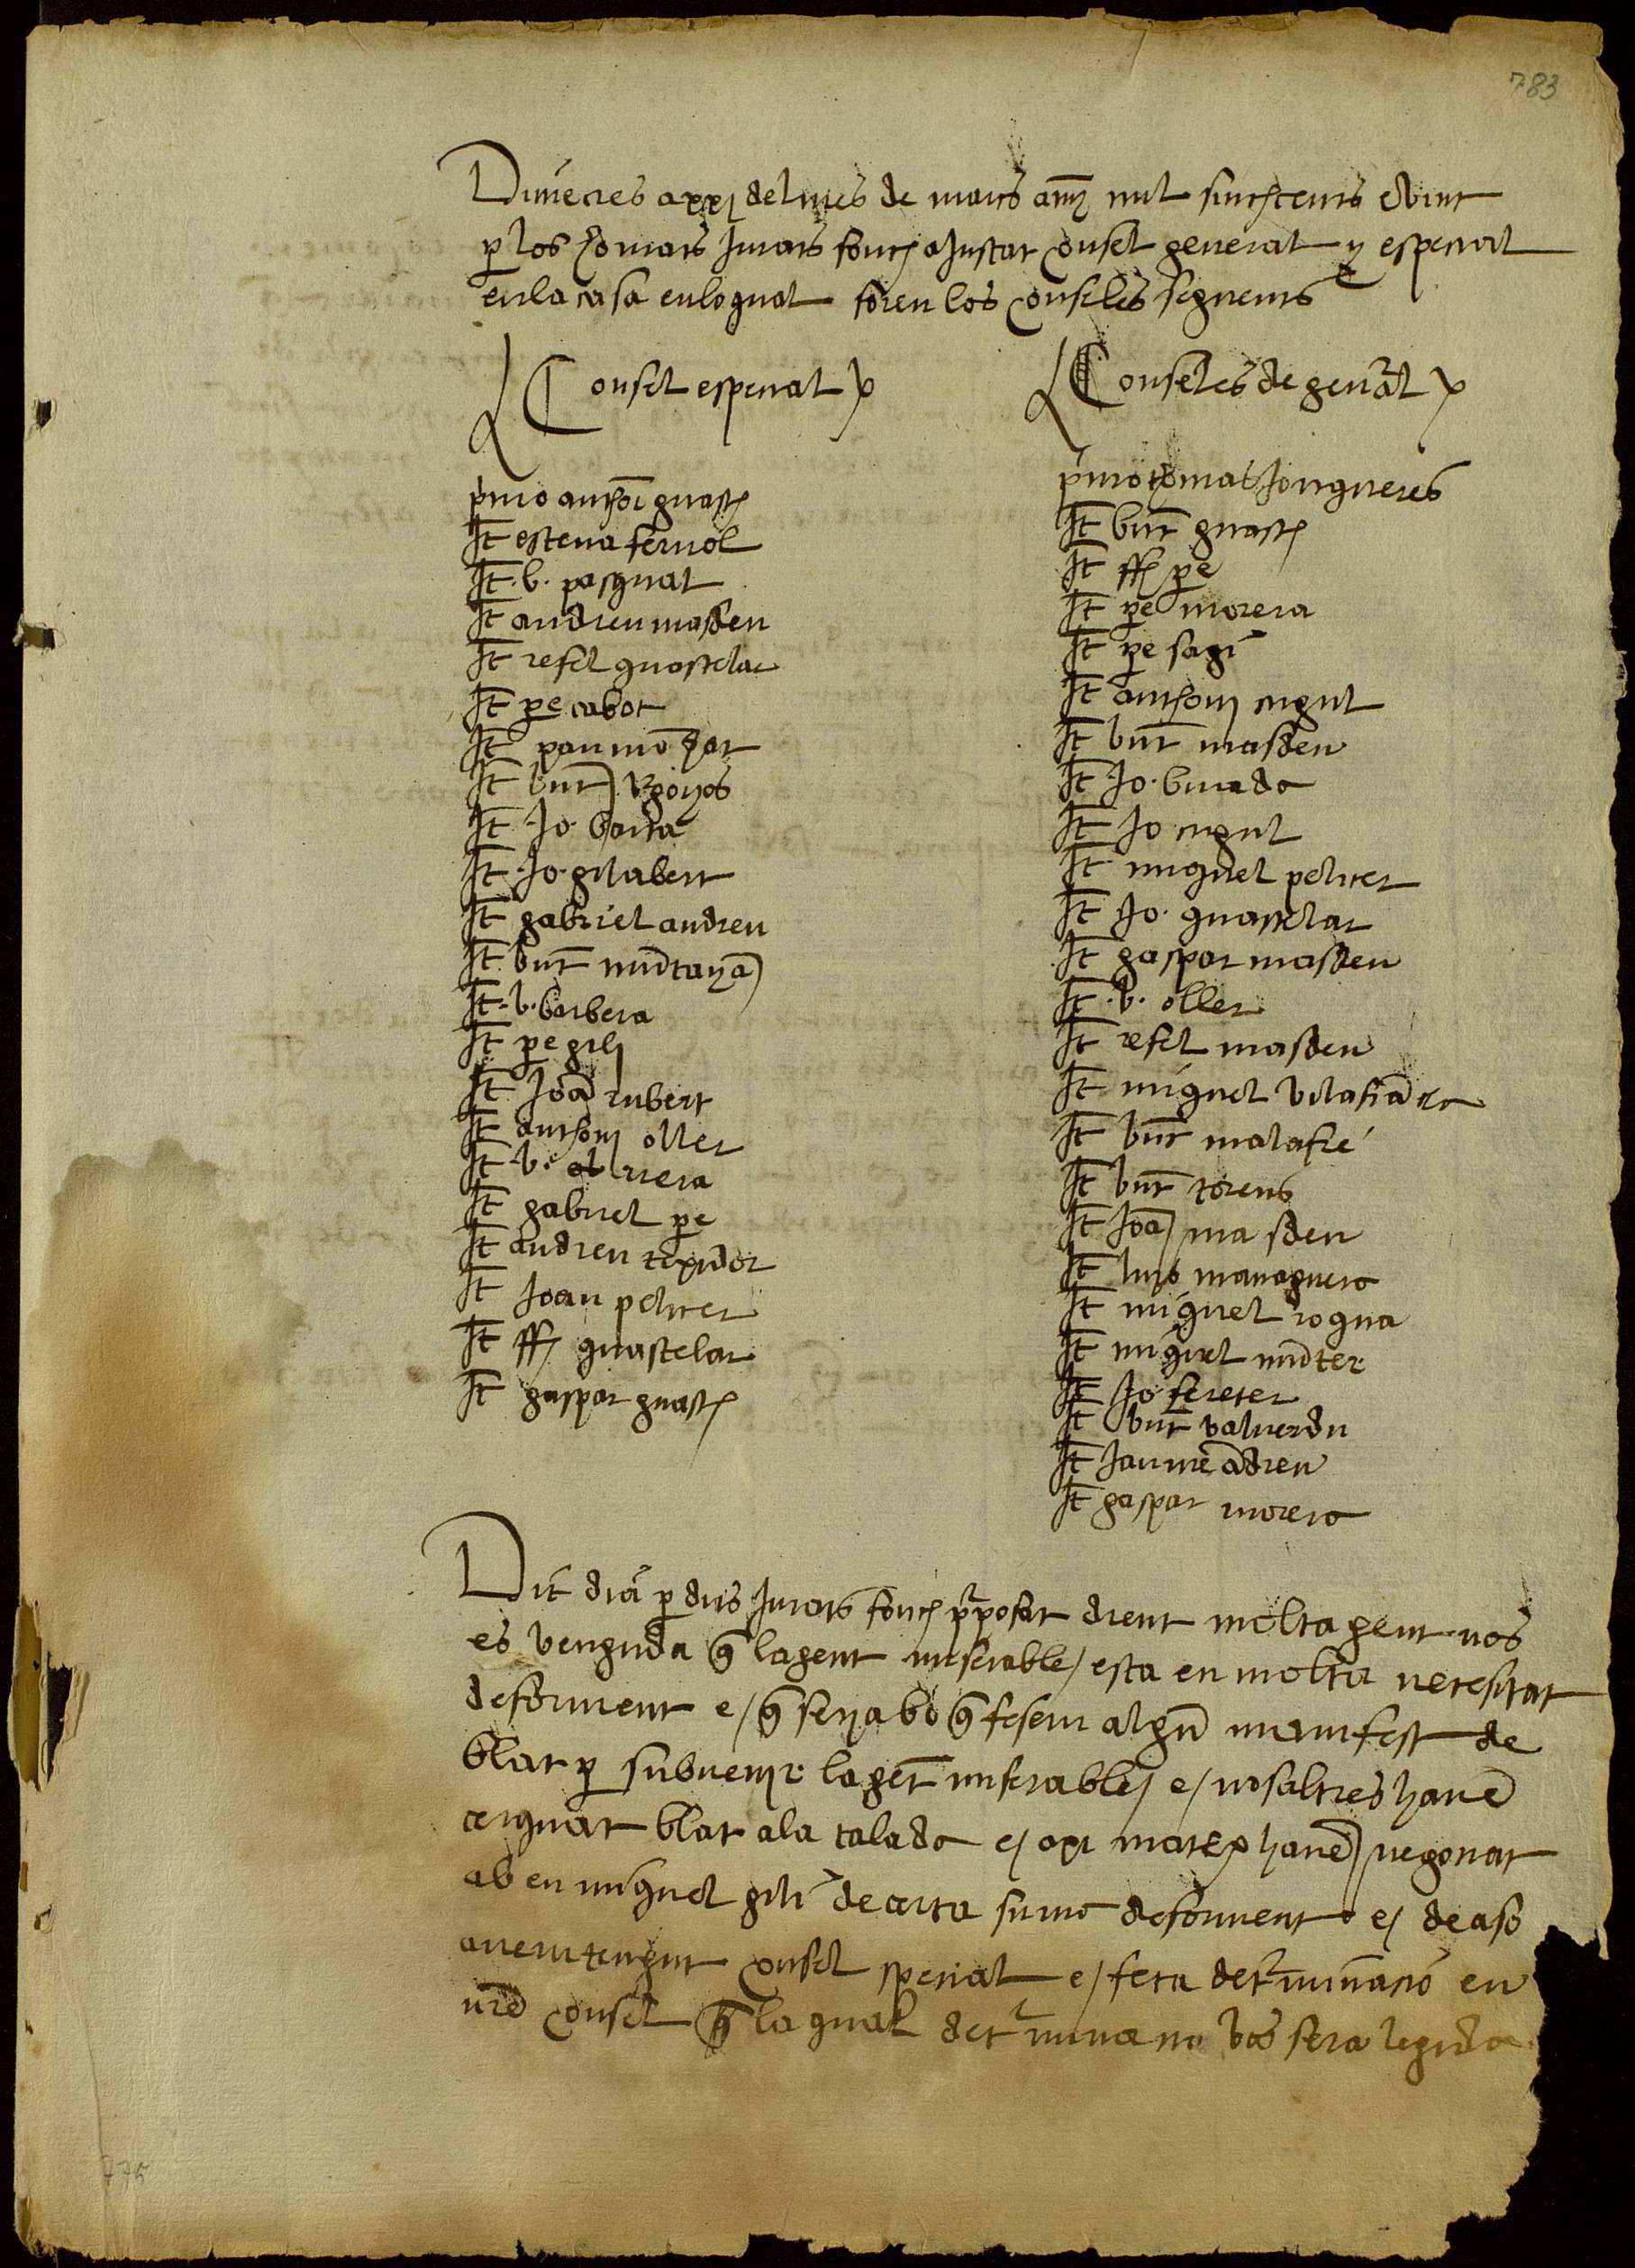 783
Dimecres a xxj del mes de mars anj mil sinchsents e vint
p los honrats Jurats fonch aJustat consel general y especial
en la casa en lo qual foren los conseles seguents
Consel especial
pmo anthoni guasch
It esteva ferriol
It .b. pasqual
It andreu masdeu
It refel guastelar
It pe cabot
It pau mo
It bnt
It Jo barta
It Jo gilabert
It gabriel andreu
It bnt mūtanȳa
It .b. barbera
It pe gili
It Joā rubert
It anthonj oller
It .b. rrera
It gabriel pe
It andreu texidor
It Joan peliser
It ffc guastelar
It gaspar guasch
Conseles de genāl
pmo thomas Jonqueres
It bnt guasch
It ffc pe
It pe morera
It pe sagi
It anthonj cugul
It bnt masdeu
It Jo. buada
It Jo cugul
It miquel peliser
It Jo. guastelar
It gaspar masdeu
It .b. oller
It refel masdeu
It miquel vilafrāca
It bnt malafre
It bnt torens
It Joā masdeu
It luis manaquera
It miquel rogua
It miquel mūter
It Jo fererer
It bnt valverdu
It Jaume ādreu
It gaspar morera
Dit dia p dits Jurats fonch pposat dient molta gent nos
es venguda q̄ la gent miserable / esta en molta necesitat
de forment e / q̄ serya bo q̄ fesem algū manifest de
blat p subvenjr la gēt miserable / e / nosaltres havē
cerquat blat a la talada e / axi matex havē / negociat
ab en miquel gili de certa suma de forment e / de aso
avem tengut consel special e / feta detminacio en
dit consel q̄ la qual detminacio vos sera legida
775